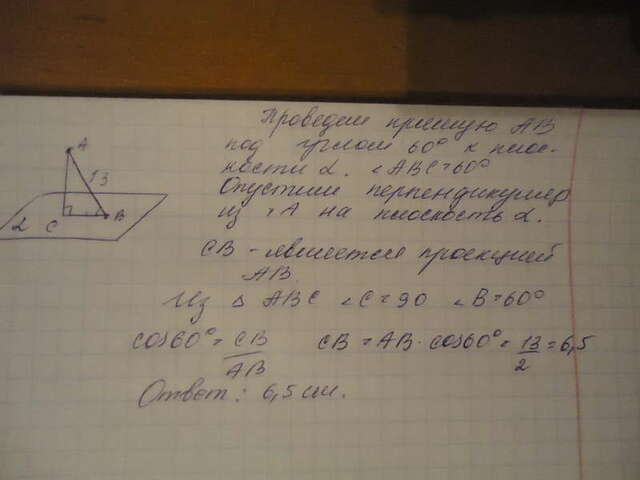 Проведем прямую АВ
под углом 60° к плос-
кости α. ∠ABC=60°
Опустим перпендикуляр
из т.А на плоскость α.
СВ - является проекцией
АВ.
Из △ АВС ∠C=90 ∠B=60°
cos60° = CB/AB CB = AB · cos60° = 13/2 = 6,5
Ответ: 6,5 см.
A
13
α C B